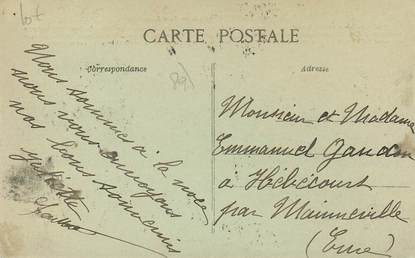 lot
CARTE POSTALE
Correspondance
Adresse
Nous sommes à la noce
nous vous envoyons
nos bons souvenirs
Juliette
Monsieur et Madame
Emmanuel Gaudon
à Hébécourt
par Mainneville
(Eure)